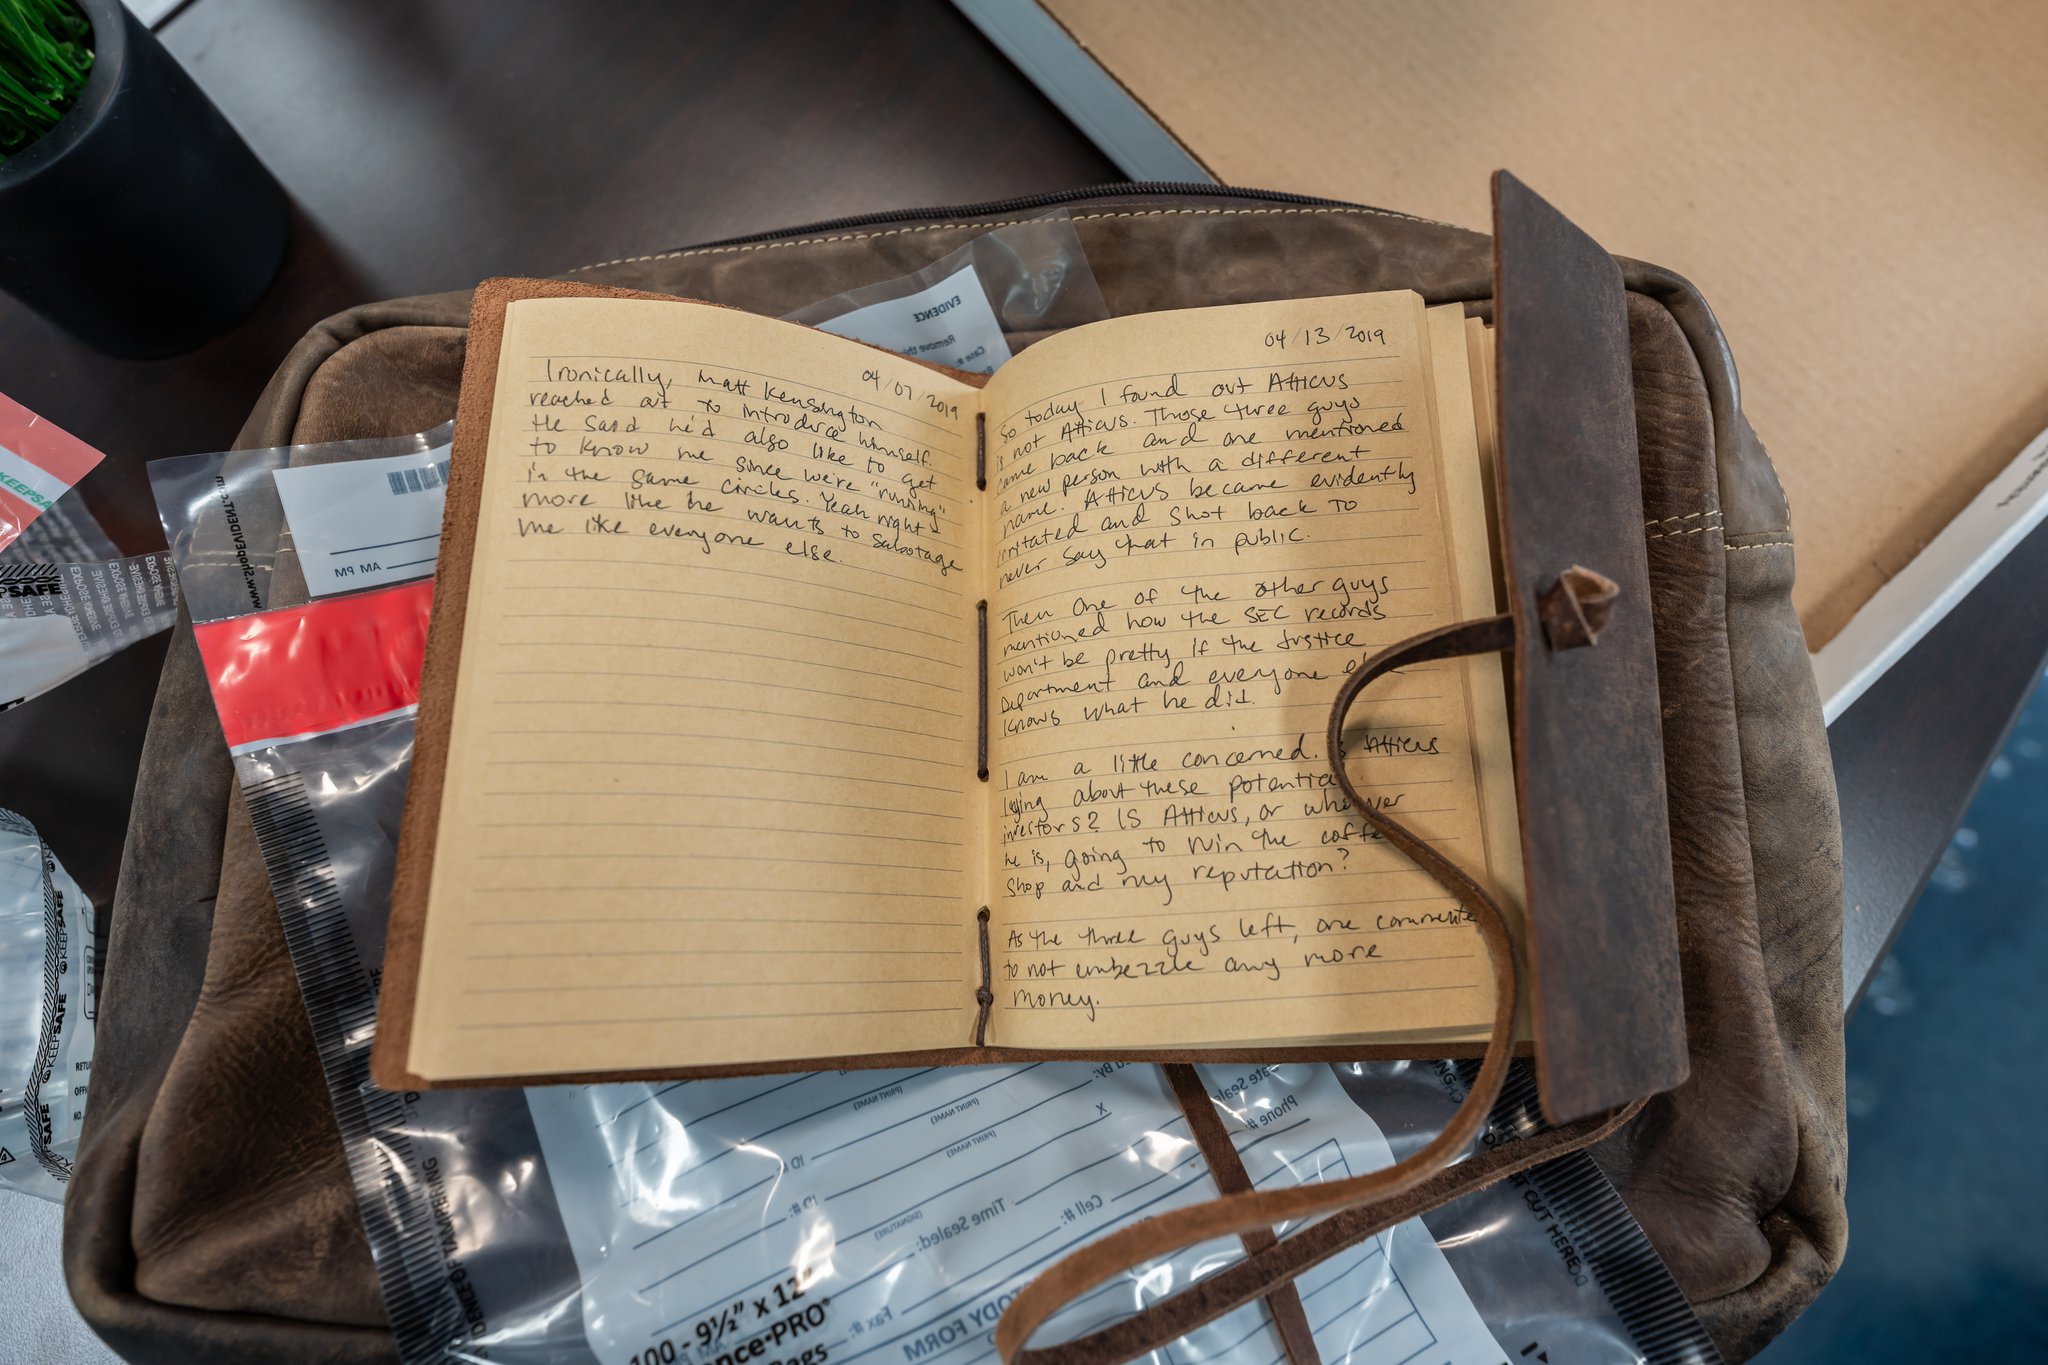 04/07/2019
Ironically, Matt Kensington
reached out to introduce himself.
He said he'd also like to get
to know me since we're "running"
in the same circles. Yeah right -
more like he wants to sabotage
me like everyone else.
04/13/2019
So today I found out Atticus
is not Atticus. Those three guys
came back and one mentioned
a new person with a different
name. Atticus became evidently
irritated and shot back to
never say that in public.
Then one of the other guys
mentioned how the SEC records
won't be pretty if the Justice
Department and everyone
knows what he did.
I am a little concerned. Atticus
lying about these potential
investors? Is Atticus, or whoever
he is, going to ruin the coffee
shop and my reputation?
As the three guys left, one commented
to not embezzle any more
money.
EVIDENCE
Remove this
Case #:
www.ShopEVIDENT.com
AM PM
KEEPSAFE
KEEPSAFE
KEEPSAFE
EVIDENCE OF TAMPERING
(PRINT NAME)
(PRINT NAME)
X
ID #:
(SIGNATURE)
Time Sealed:
Date Sealed
Phone #:
Cell #:
Fax #:
CUSTODY FORM
CUT HERE
100 - 9½" x 12"
Evidence•PRO®
Bags